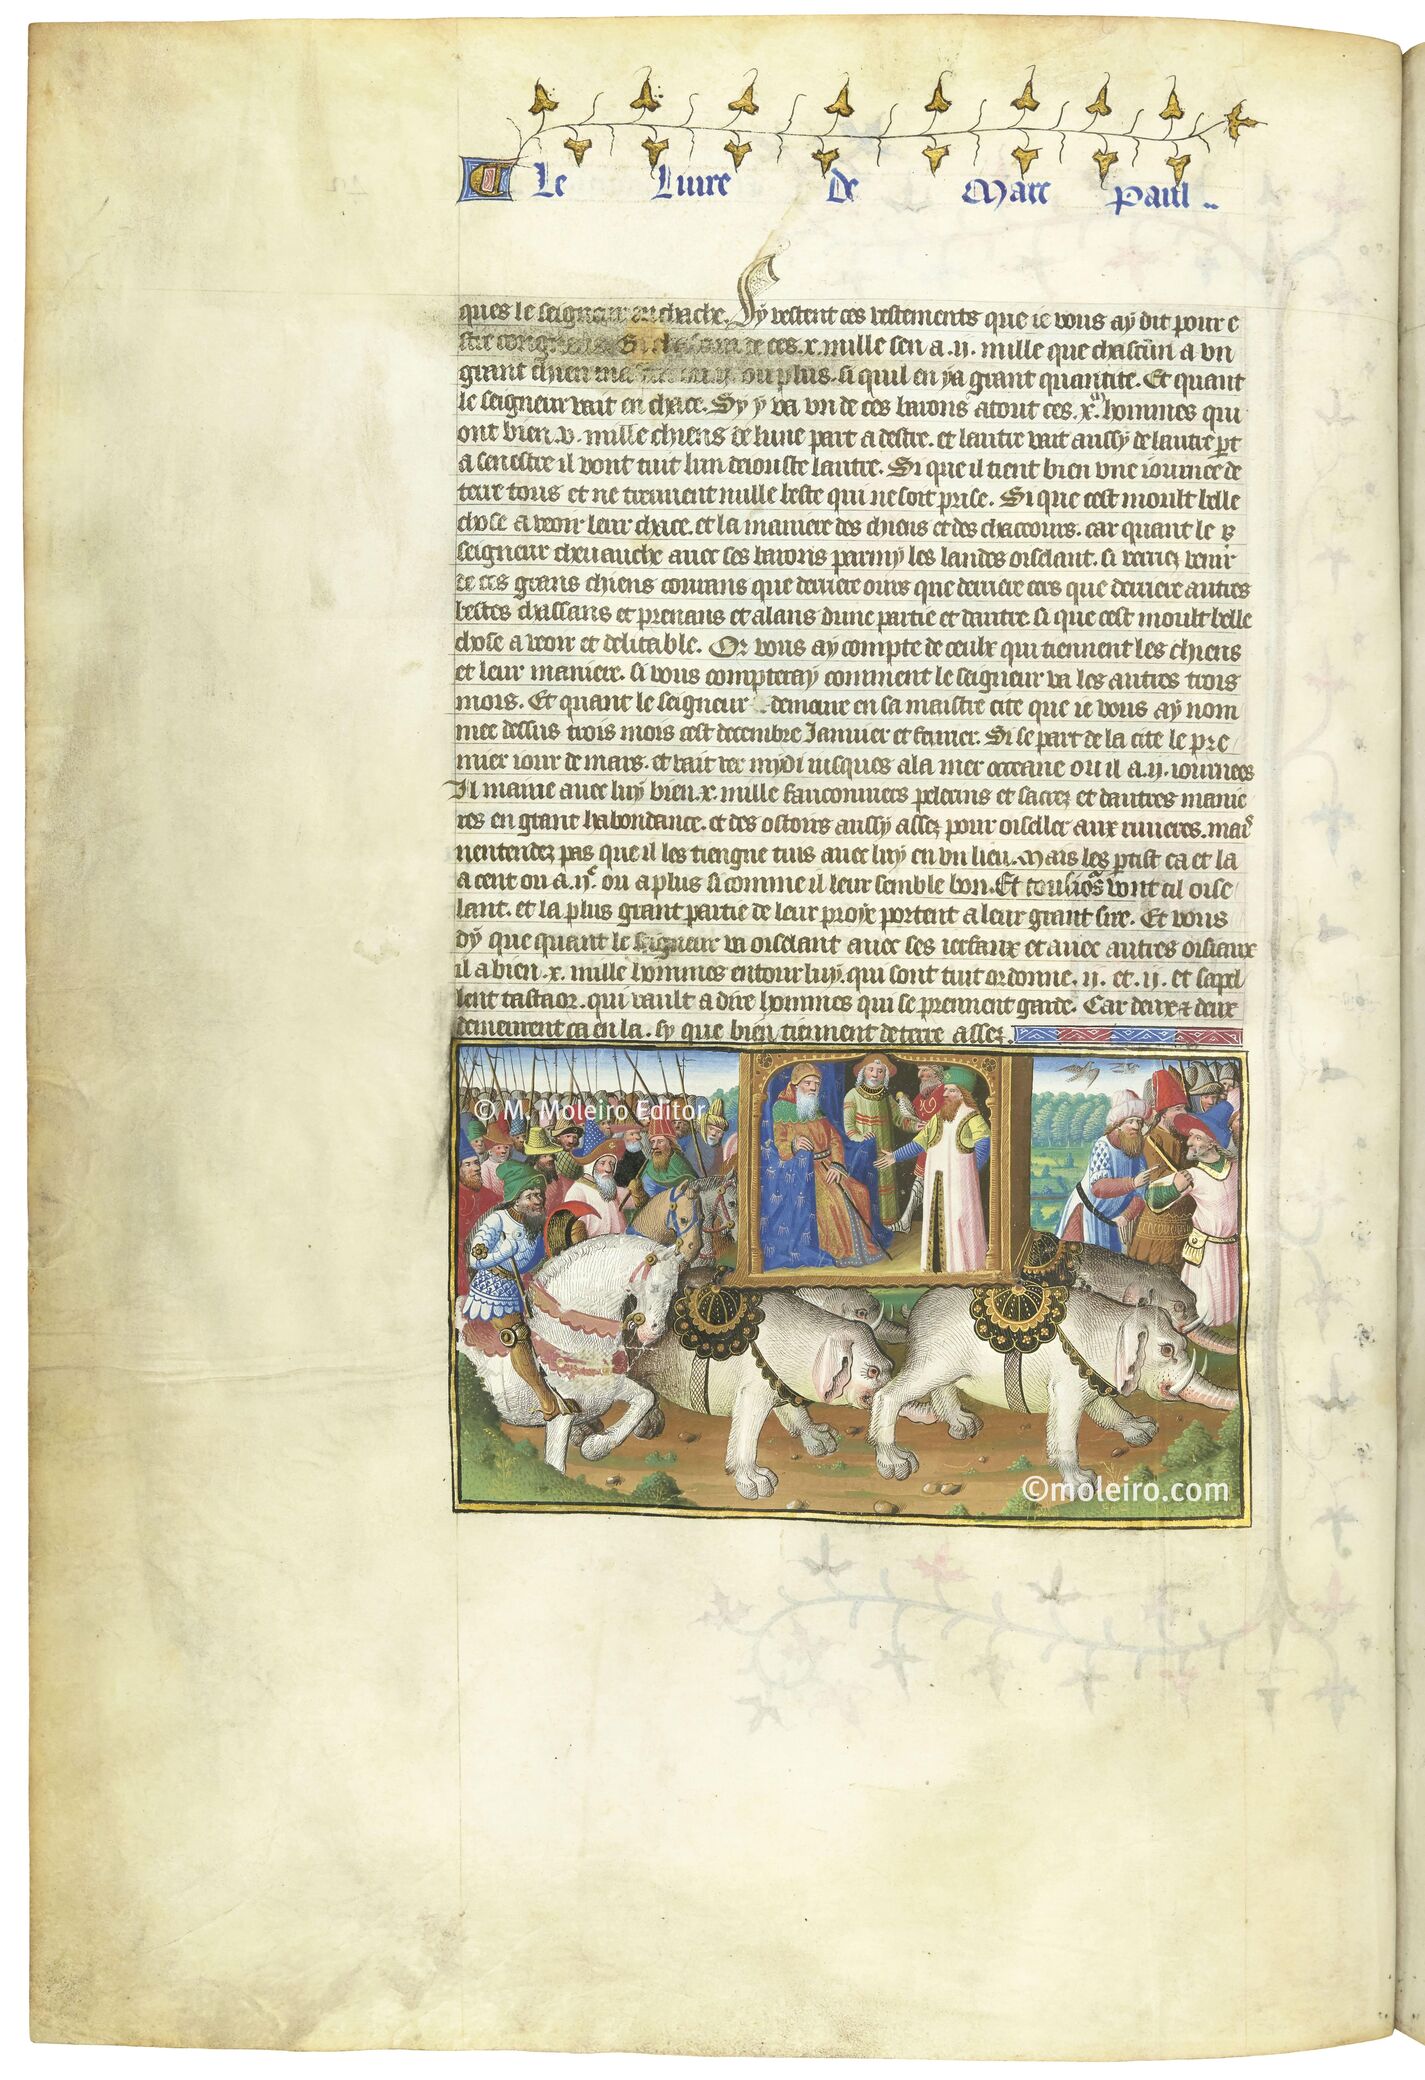 Le Liure De Marc Paul..
ques le seigneur au chache. Sy vestent ces vestements que ie vous ay dit pour e
stre Si chascun de ces .x. mille sen a .ij. mille que chascun a vn
grant chien ou plus. si quil en ya grant quantite. Et quant
le seigneur vait en chace. Sy y va vn de ces barons atout ces .x.m hommes qui
ont bien .v. mille chiens de lune part a destre. et lautre vait aussy de lautre pt
a senestre il vont tuit lun deiouste lautre. Si que il tient bien vne iournee de
terre tous et ne treuuent nulle beste qui ne soit prise. Si que cest moult belle
chose a veoir leur chace. et la maniere des chiens et des chaceours. car quant le
seigneur cheuauche auec ses barons parmy les landes oiselant. si verriez venir
de ces grans chiens courans que derriere ours que derriere cers que derriere autres
bestes chassans et prenans et alans dune partie et dautre si que cest moult belle
chose a veoir et delitable. Or vous ay compte de ceulx qui tiennent les chiens
et leur maniere. si vous compteray comment le seigneur va les autres trois
mois. Et quant le seigneur demoure en sa maistre cite que ie vous ay nom
mee dessus trois mois cest decembre Januier et feurier. Si se part de la cite le pre
mier iour de mars. et vait ver mydi iusques a la mer occeane ou il a .ij. iournees
Il maine auec luy bien .x. mille fauconniers pelerins et sacrez et dautres manie
res en grant habondance. et des ostoirs aussy assez pour oiseller aux riuieres. mais
nentendez pas que il les tiengne tuis auec luy en vn lieu. Mais les ptist ca et la
a cent ou a .ijc. ou a plus si comme il leur semble bon. Et tousiors vont cil oise
lant. et la plus grant partie de leur proye portent a leur grant sire. Et vous
dy que quant le seigneur va oiselant auec ses ierfaux et auec autres oisiaux
il a bien .x. mille hommes entour luy. qui sont tuit ordonne .ij. et .ij. et sapel
lent tastaor. qui vault a dire hommes qui se prennent garde. Car deux & deux
demeurent ca en la. sy que bien tiennent de terre assez.
© M. Moleiro Editor
©moleiro.com